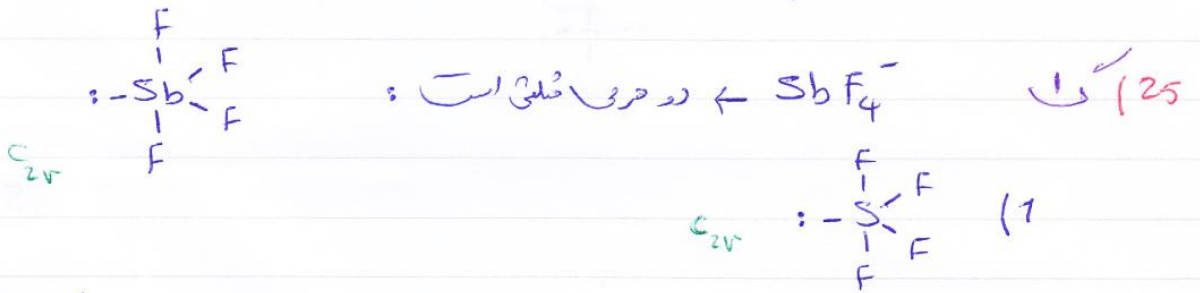 25) گ 1 SbF₄⁻ ← دو هرمی مثلثی است :
F
F
:-Sb
F
F
C₂ᵥ
1)
F
F
:-S
F
F
C₂ᵥ